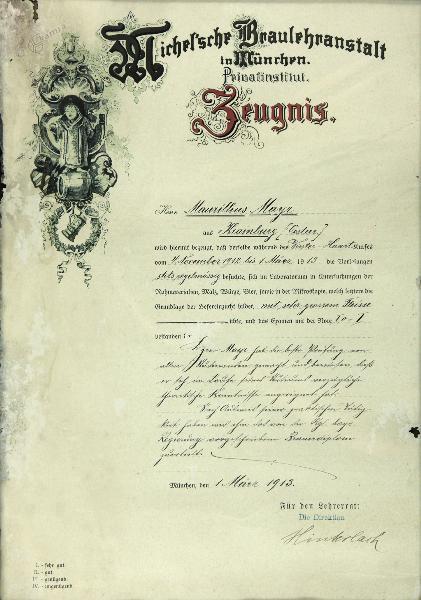 Michel'sche Braulehranstalt
in München.
Privatinstitut.
Zeugnis.
Herr Mauritius Mayr
aus Krainburg (Oester.)
wird hiermit bezeugt, daß derselbe während des Winter-Haupt-Kurses
vom 4. November 1912 bis 1. März 1913 die Vorlesungen
stets regelmässig besuchte, sich im Laboratorium in Untersuchungen der
Rohmaterialien, Malz, Würze, Bier, sowie in der Mikroskopie, welch letztere die
Grundlage der Hefereinzucht bildet, mit sehr grossem Fleisse
übte, und das Examen mit der Note No I
bestanden:
Herr Mayr hat die beste Prüfung von
allen gemacht und bewiesen, daß
er sich im Laufe seines Studiums vorzügliche
theoretische Kenntnisse angeeignet hat.
Nach seiner praktischen
haben wir ihm das von der Kgl. bayr.
Regierung vorgeschriebene Braudiplom
zuerteilt.
München, den 1. März 1913.
Für den Lehrerrat:
Die Direktion
I. = sehr gut
II. = gut
III. = genügend
IV. = ungenügend